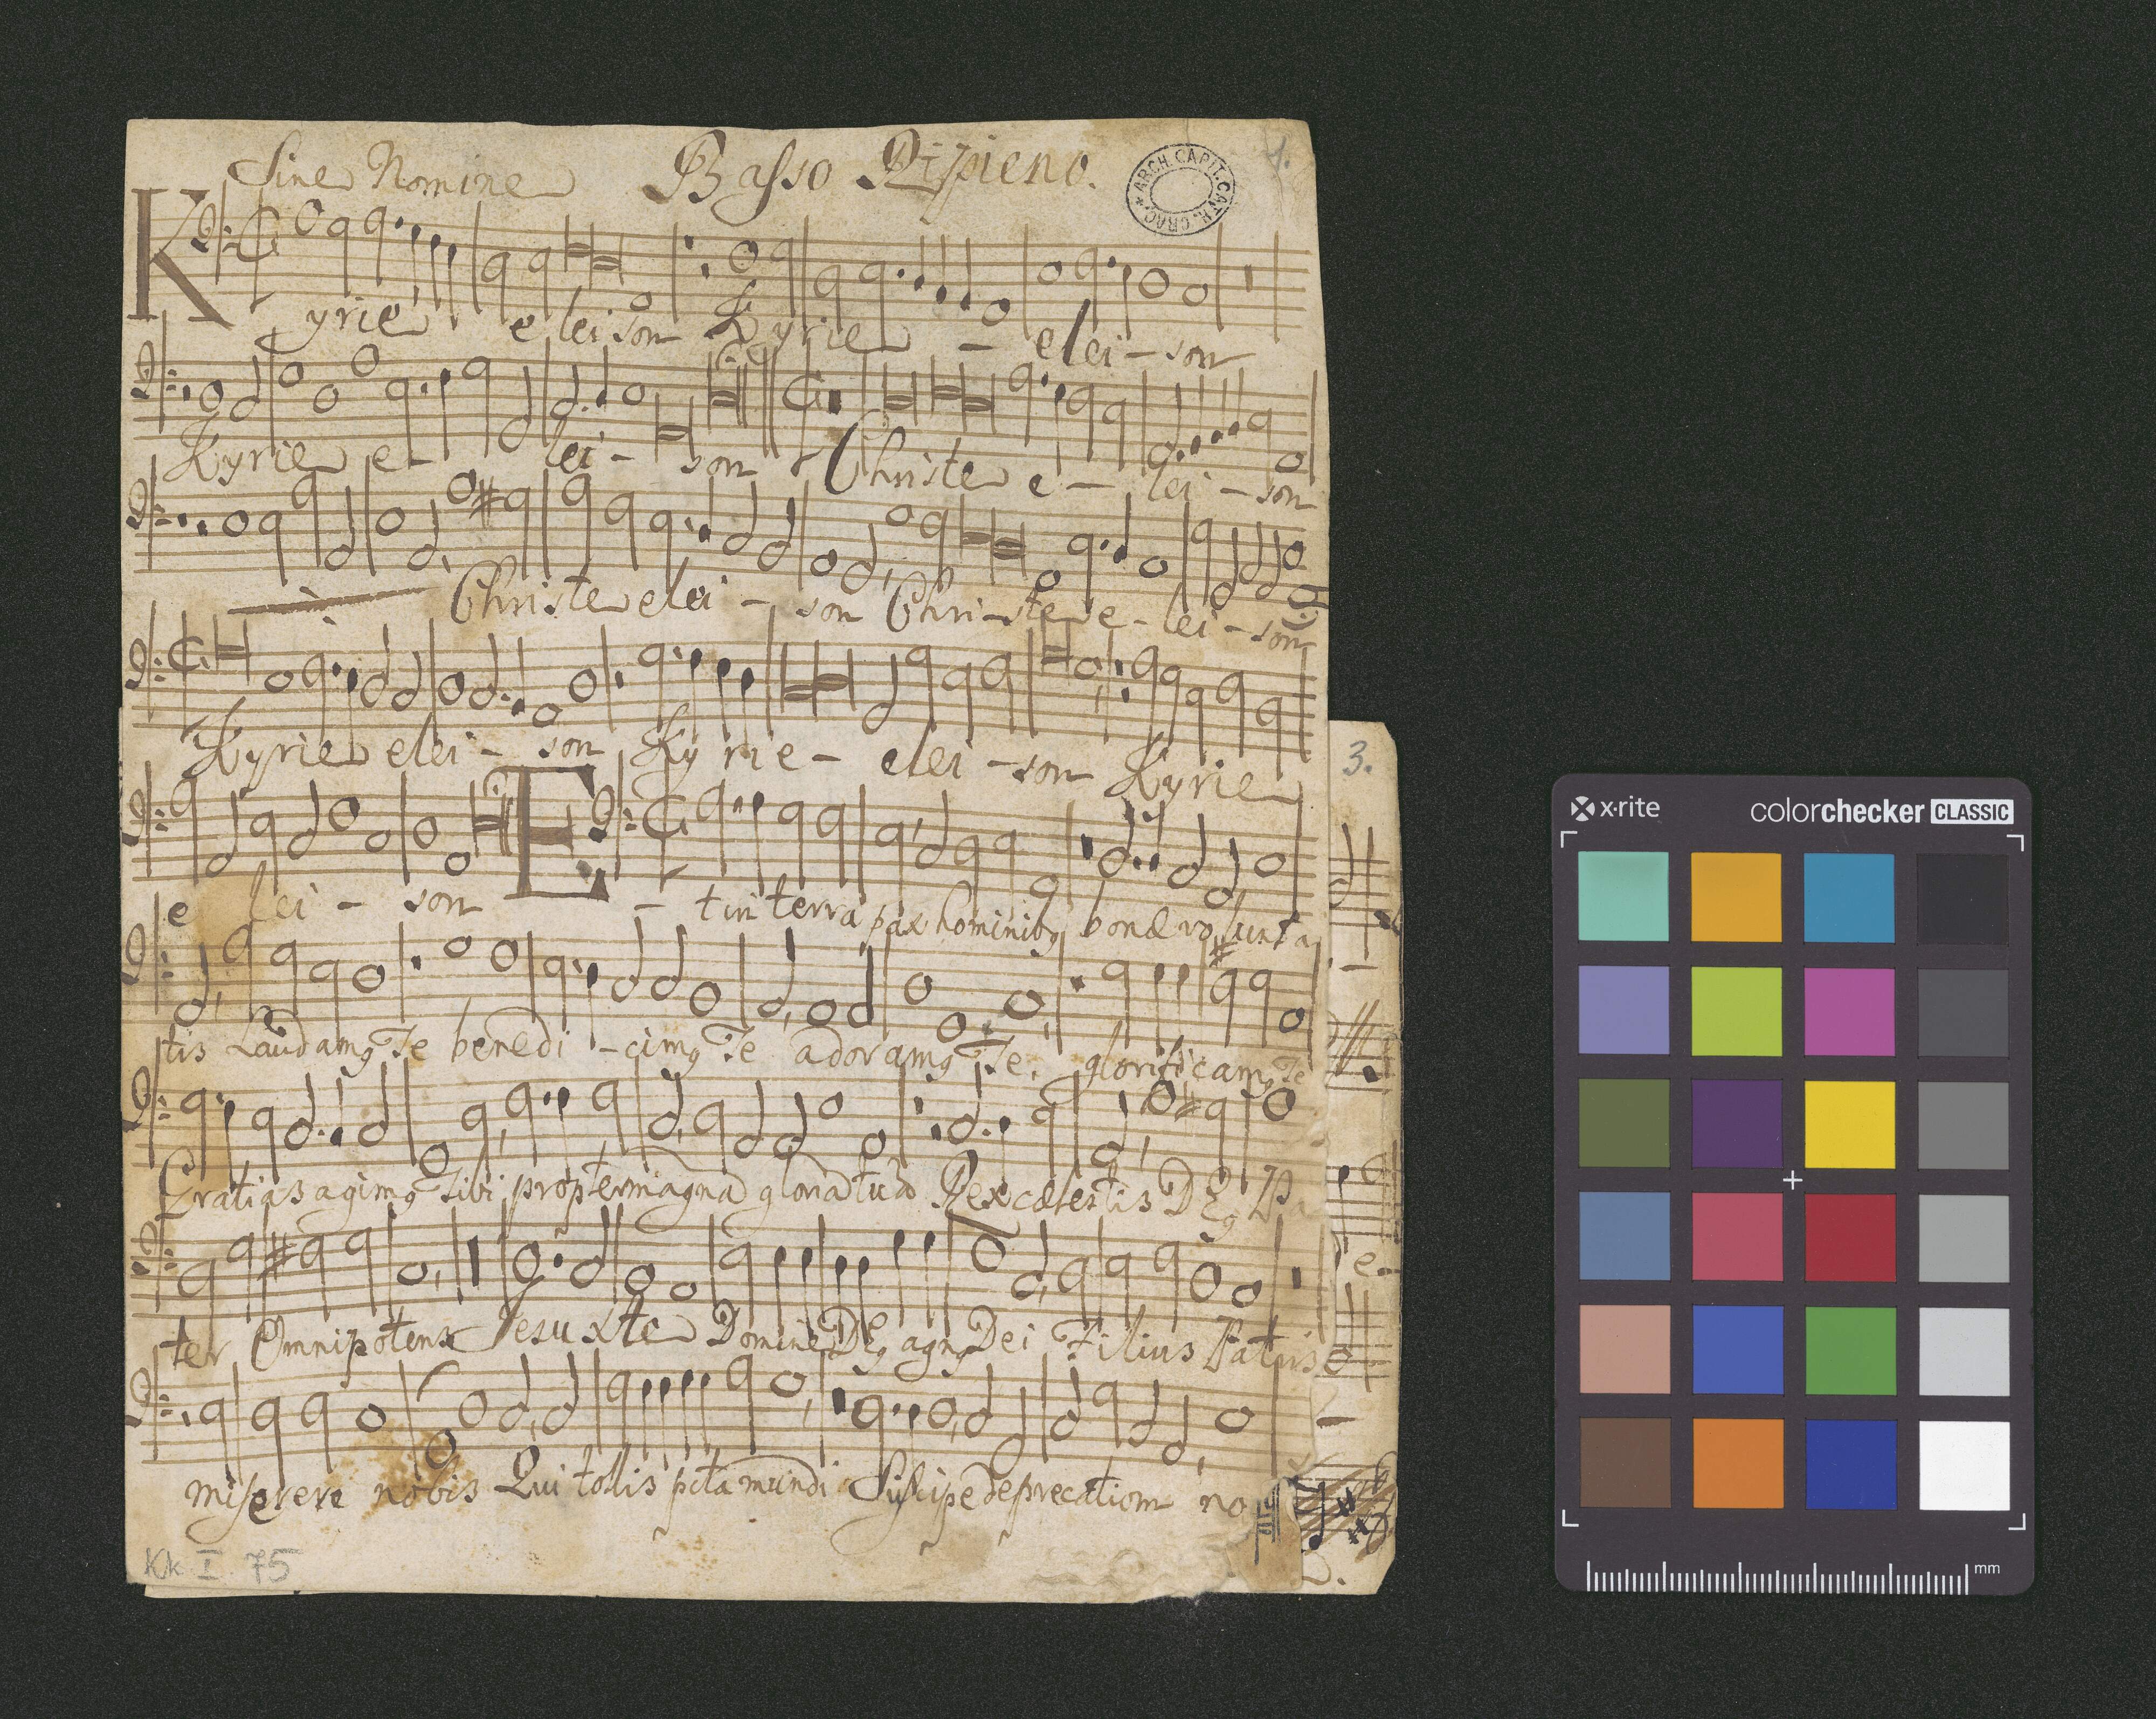 Sine Nomine Basso Ripieno. 1.
ARCH. CAPIT. CATH. CRAC.
Kyrie e lei son Kyrie - elei - son
Kyrie e - lei - son Christe e - lei - son
Christe elei - son Chri - ste e - lei - son
Kyrie elei - son Ky rie - elei - son Kyrie
e lei - son E - t in terra pax hominibꝯ bonæ volunta
tis Laudamꝯ Te benedi - cimꝯ Te adoramꝯ Te. glorificamꝯ Te
Gratias agimꝯ tibi propter magnã gloriã tuã Rex cælestis DEꝯ Pa
ter Omnipotens Jesu Xte Domine DEꝯ agnꝯ Dei Filius Patris
miserere nobis Qui tollis pctã mundi Suscipe deprecationẽ no
Kk I. 75
3.
e -
x·rite colorchecker CLASSIC
mm